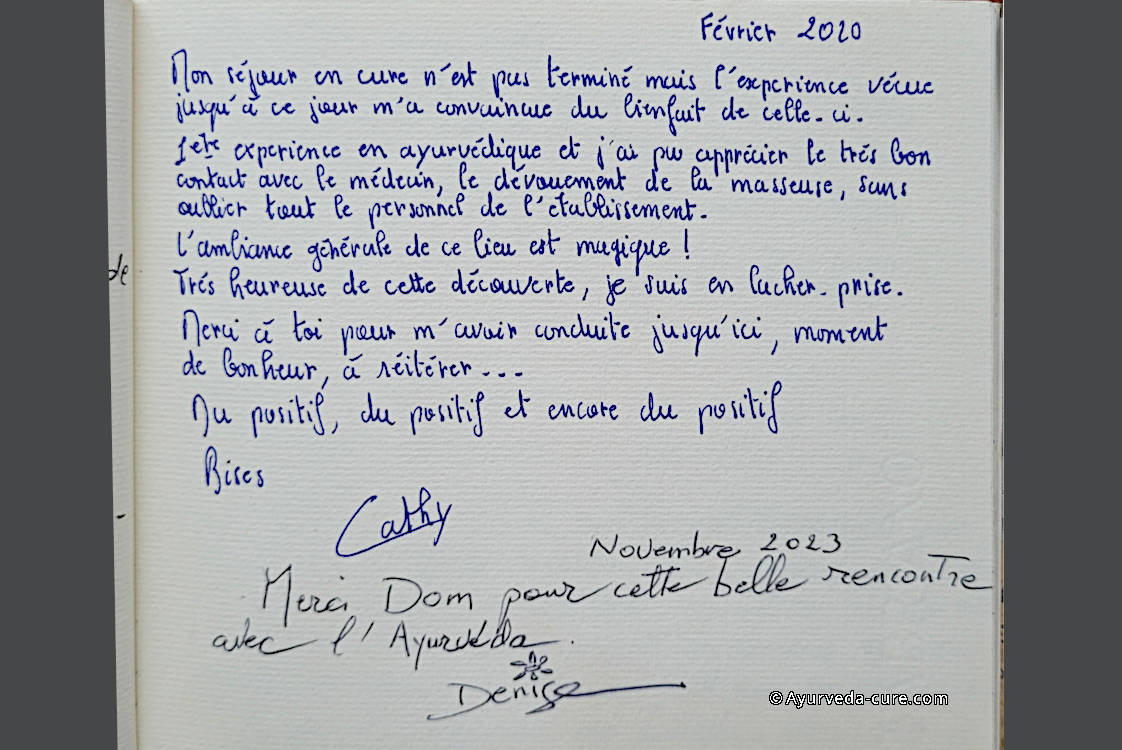 Février 2020
Mon séjour en cure n'est pas terminé mais l'experience vécue
jusqu'à ce jour m'a convaincue du bienfait de celle-ci.
1ere experience en ayurvédique et j'ai pu apprécier le trés bon
contact avec le médecin, le dévouement de la masseuse, sans
oublier tout le personnel de l'établissement.
L'ambiance générale de ce lieu est magique !
Trés heureuse de cette découverte, je suis en lacher-prise.
de
Merci à toi pour m'avoir conduite jusqu'ici, moment
de bonheur, à réitérer...
Du positif, du positif et encore du positif
Bises
Cathy
Novembre 2023
Merci Dom pour cette belle rencontre
avec l'Ayurvéda.
Denise
©Ayurveda-cure.com